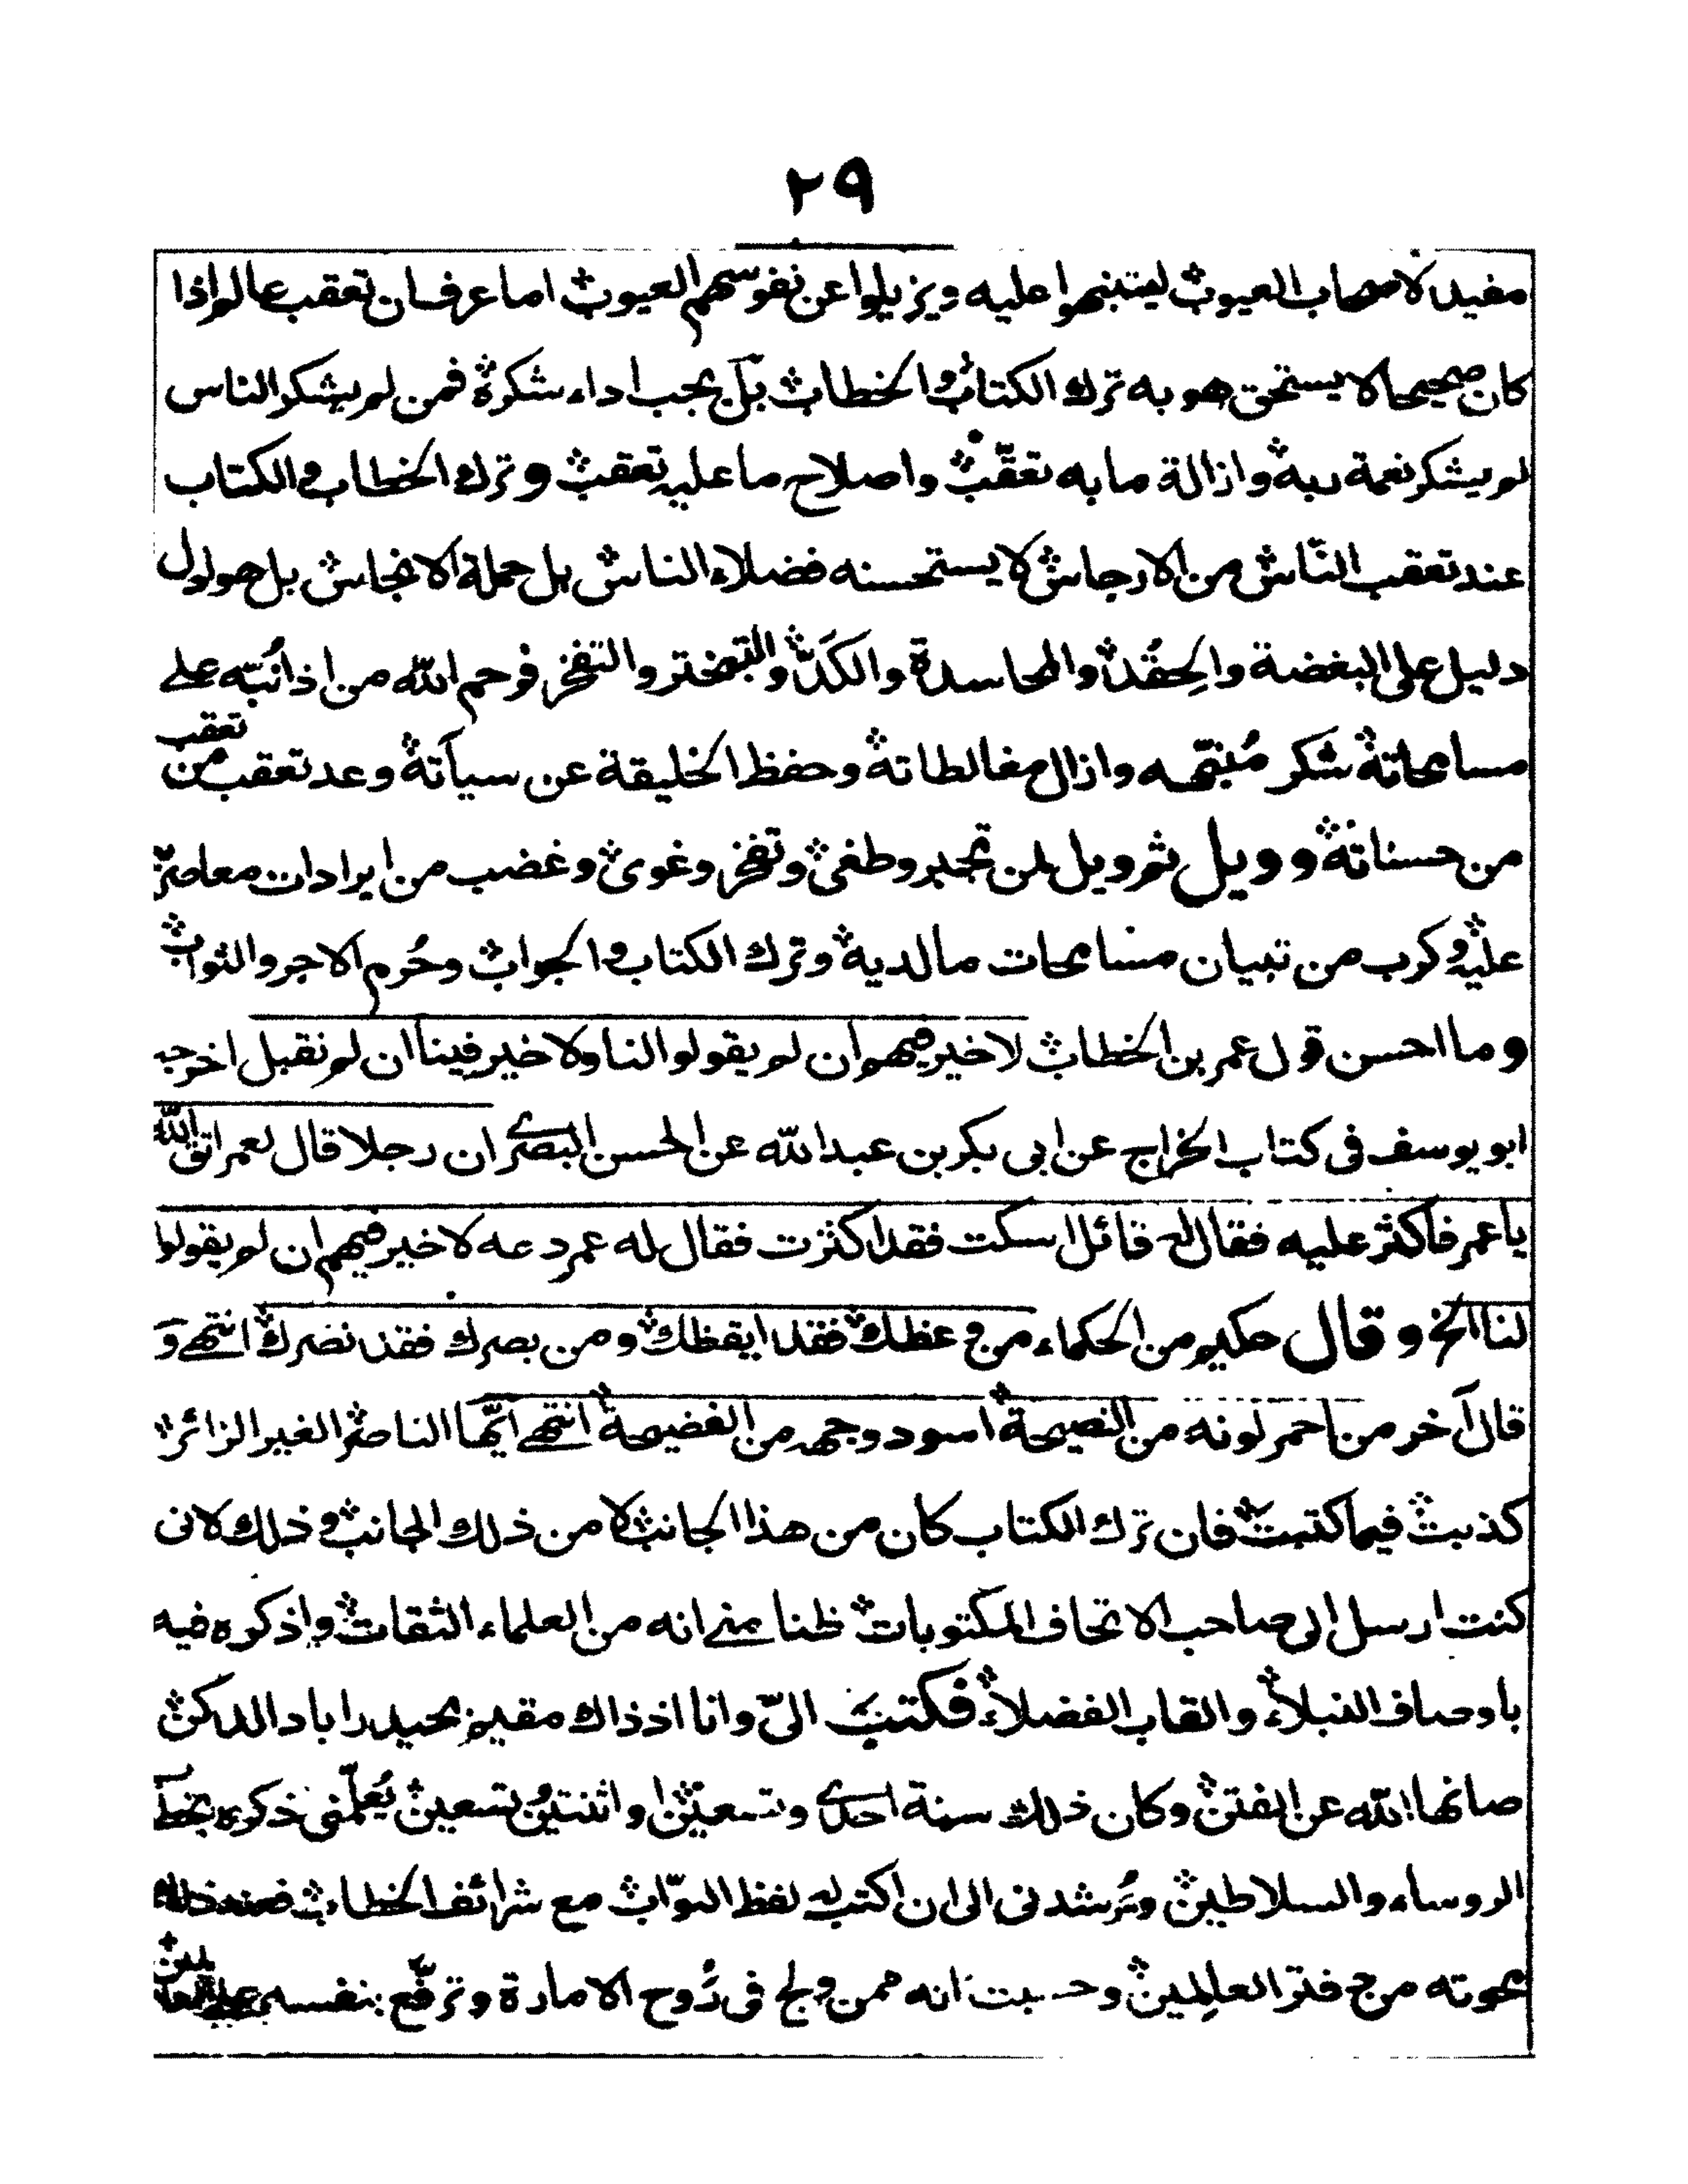 ٢٩
مفيد لاصحاب العيوب ليتنبهوا عليه ويزيلوا عن نفوسهم العيوب اما عرف ان تعقب عالم اذا
كان صحيحا لا يستحق هو به ترك الكتاب والخطاب بل يجب اداء شكره فمن لم يشكر الناس
لم يشكر نعمة ربه وازالة ما به تعقب واصلاح ما عليه تعقب وترك الخطاب والكتاب
عند تعقب الناس من الارجاس لا يستحسنه فضلاء الناس بل حملة الانجاس بل هو اول
دليل على البغضة والحِقُد والمحاسدة والكَدّ والتبختر والتفخر فرحم الله من اذا نُبّه على
مسامحاته شكر مُنبّهه وازال مغالطاته وحفظ الخليقة عن سيأته وعد تعقب من تعقب
من حسناته وويل ثم ويل لمن تجبر وطغى وتفخر وغوى وغضب من ايرادات معاصره
عليه وكرب من تبيان مسامحات ما لديه وترك الكتاب والجواب وحُرم الاجر والثواب
وما احسن قول عمر بن الخطاب لا خير فيهم ان لم يقولوا لنا ولا خير فينا ان لم نقبل اخرجه
ابو يوسف فى كتاب الخراج عن ابى بكر بن عبد الله عن الحسن البصرى ان رجلا قال لعمر اتق الله
يا عمر فاكثر عليه فقال له قائل اسكت فقد اكثرت فقال له عمر دعه لا خير فيهم ان لم يقولوا
لنا الخ وقال حكيم من الحكماء من وعظك فقد ايقظك ومن بصرك فقد نصرك انتهى و
قال آخر من احمر لونه من النصيحة اسود وجهه من الفضيحة انتهى ايّها الناصر الغير الزائر
كذبت فيما كتبت فان ترك الكتاب كان من هذا الجانب لا من ذلك الجانب وذلك لانى
كنت ارسل الى صاحب الاتحاف المكتوبات ظنا منى انه من العلماء الثقات واذكره فيه
باوصاف النبلاء والقاب الفضلاء فكتب الىّ وانا اذ ذاك مقيم بحيدراباد الدكن
صانها الله عن الفتن وكان ذلك سنة احدى وتسعين او اثنتين وتسعين يُعلّمنى ذكره بخط
الروساء والسلاطين ويُرشدنى الى ان اكتب له لفظ النوّاب مع شرائف الخطاب فعند ذلك
محوته من دفتر العالِمين وحسبت انه ممن ولج فى دَوح الامارة وترفّع بنفسه على العالمين